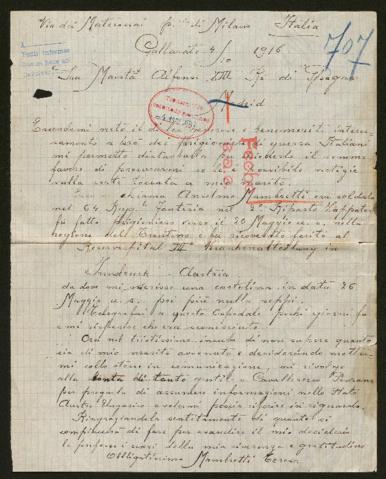 Via dei Materassai pr. di Milano Italia
Gallarate 4/10 1916
707
Sua Maestà Alfonso XIII Re di Spagna
Madrid
Essendomi noto il di Lei
interes-
samento a pro dei prigionieri di guerra Italiani
mi permetto disturbarla per chiederle il sommo
favore di procurarmi se le è possibile notizie
sulla sorte toccata a mio marito.
chiama Anselmo Mambretti era soldato
nel 64 Regg. Fanteria nel Riparto Zappatori
fu fatto prigioniero circa il 20 Maggio u. s. nella
regione del Trentino e fu ricoverato ferito al
Reservespital III Krankenabteilung in
Innsbruck Austria
da dove mi scrisse una cartolina in data 26
Maggio u. s. poi più nulla seppi.
Telegrafai a questo Ospedale pochi giorni fa
e mi risposero che era sconosciuto.
Ora nel tristissimo incubo di non sapere quanto
sia di mio marito avvenuto e desiderando metter-
mi collo stesso in comunicazione, mi rivolgo
alla tanto gentil e Cavalleresca Persona
per pregarla di assumere informazioni nello Stato
Austro Ungarico e volermi possa riferire in riguardo.
Ringraziandola sentitamente di quanto si
compiacerà di fare per esaudire il mio desiderio
le porgo i sensi della mia riverenza e gratitudine
Obbligatissima Mambretti Teresa